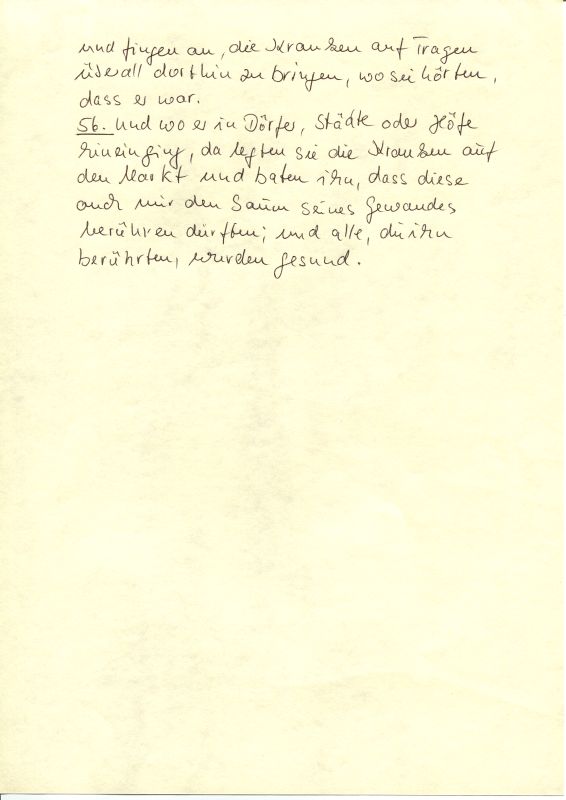 und fingen an, die Kranken auf Tragen
überall dorthin zu bringen, wo sei hörten,
dass er war.
56. Und wo er in Dörfer, Städte oder Höfe
hineinging, da legten sie die Kranken auf
den Markt und baten ihn, dass diese
auch nur den Saum seines Gewandes
berühren dürften; und alle, die ihn
berührten, wurden gesund.